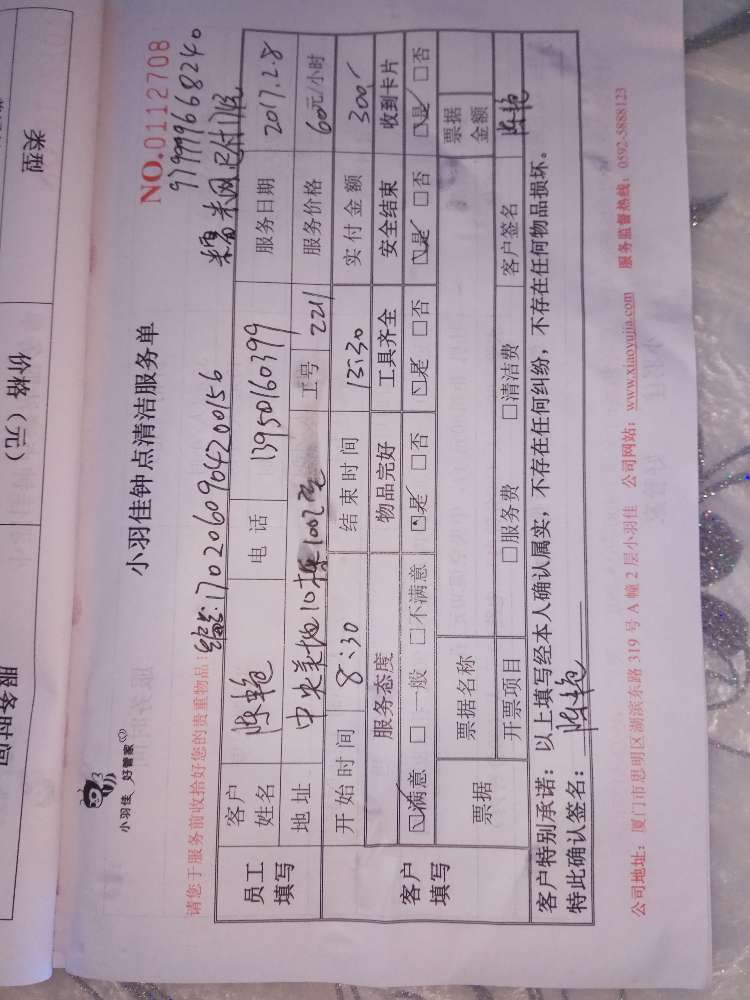 小羽佳_好管家
小羽佳钟点清洁服务单
NO.01112708
979999668240
请您于服务前收拾好您的贵重物品!
编号:1702060964200156
糯米网已付
员工填写
客户姓名 陈艳 电话 13950160399 服务日期 2017.2.8
地址 中央美地10栋1002 工号 221 服务价格 60元/小时
客户填写
开始时间 8:30 结束时间 13:30 实付金额 300
服务态度 物品完好 工具齐全 安全结束 收到卡片
☑满意 □一般 □不满意 ☑是 □否 ☑是 □否 ☑是 □否 ☑是 □否
票据 票据名称 票据金额
开票项目 □服务费 □清洁费 客户签名 陈艳
客户特别承诺:以上填写经本人确认属实,不存在任何纠纷,不存在任何物品损坏。
特此确认签名: 陈艳
公司地址:厦门市思明区湖滨东路 319 号 A 幢 2 层小羽佳 公司网站:www.xiaoyujia.com 服务监督热线:0592-5888123
类型
价格(元)
服务时间